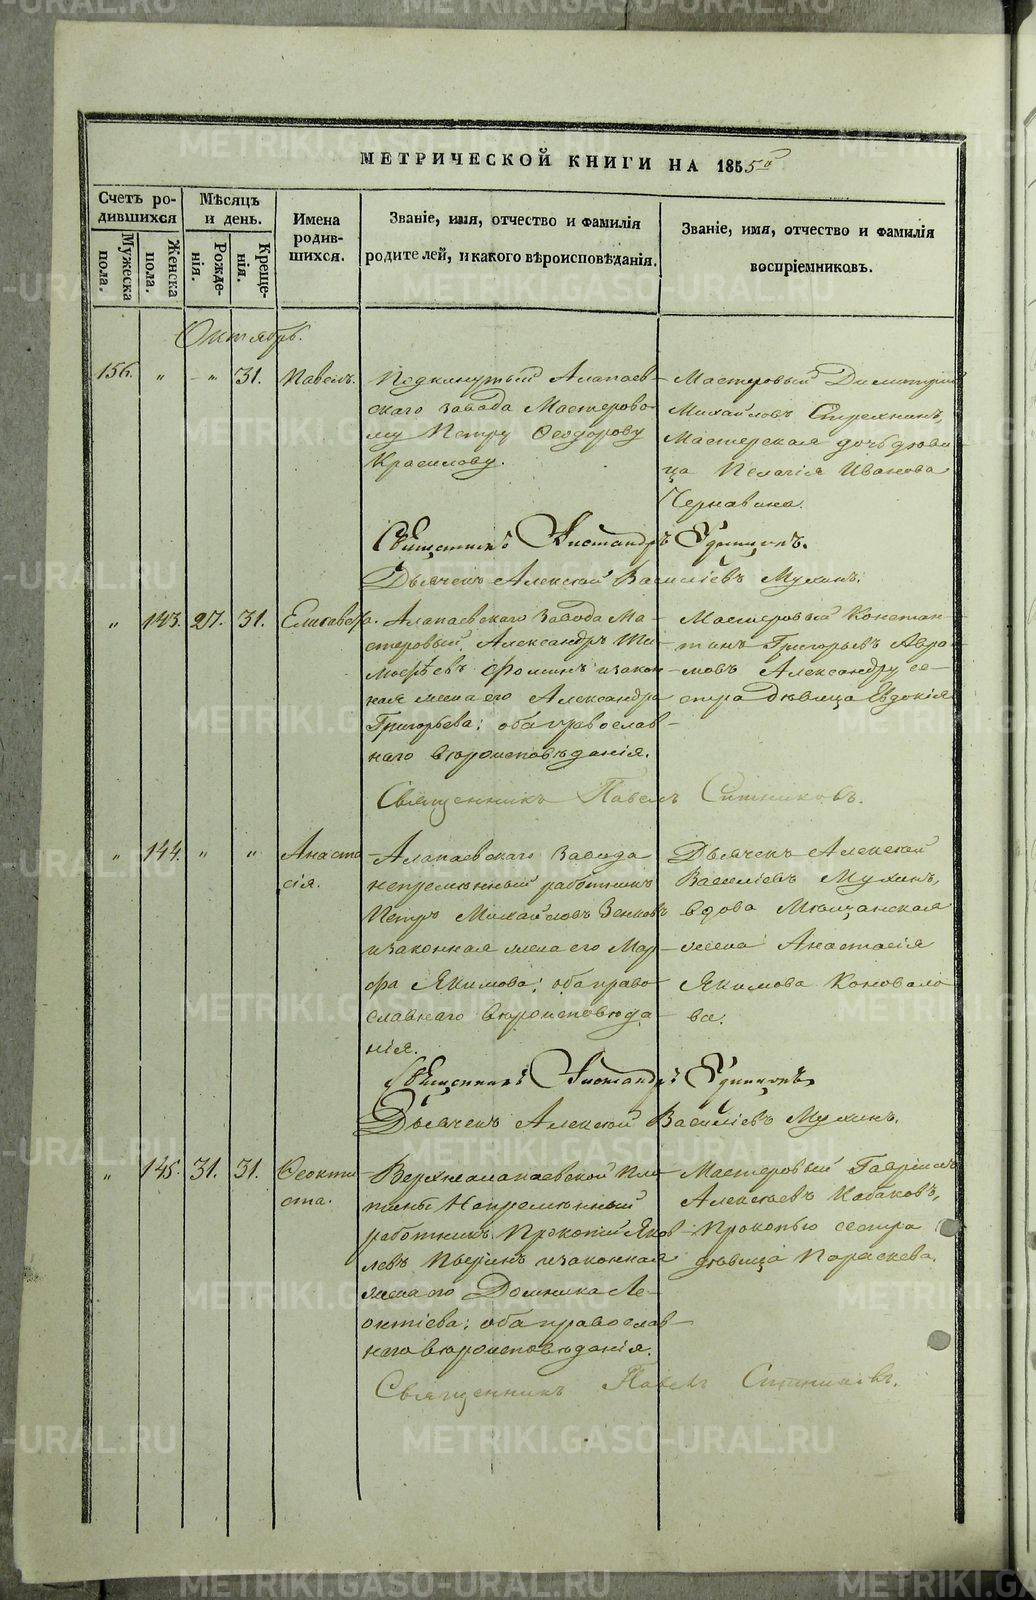 МЕТРИЧЕСКОЙ КНИГИ НА 1855й
Счетъ ро-
дившихся
Мужеска
пола.
Женска
пола.
Мѣсяцъ
и день.
Рожде-
нія.
Креще-
нія.
Имена
родив-
шихся.
Званіе, имя, отчество и фамилія
родителей, и какого вѣроисповѣданія.
Званіе, имя, отчество и фамилія
воспріемниковъ.
Октябрь.
156. " " 31. Павелъ.
Подкинутый Алапаев-
скаго завода Мастерово-
му Петру Ѳеодорову
Красилову.
Мастеровый Димитрій
Михайловъ
Мастерская дочь дѣви-
ца Пелагія Иванова
Чернавина.
Священникъ Удинцовъ.
Дьячекъ Алексѣй Василіевъ Мухинъ.
" 143. 27. 31. Елисавета.
Алапаевскаго завода Ма-
стеровый Александръ Ти-
моѳѣевъ Ѳоминъ и закон-
ная жена его Александра
Григорьева; оба православ-
наго вѣроисповѣданія.
Мастеровый Констан-
тинъ Григорьевъ Авра-
мовъ Александру се-
стра дѣвица Евдокія
Священникъ Павелъ Ситниковъ.
" 144. " " Анаста-
сія.
Алапаевскаго Завода
непремѣнный работникъ
Петръ Михайловъ Зенковъ
и законная жена его Мар-
ѳа Якимова; оба право-
славнаго вѣроисповѣда-
нія.
Дьячекъ Алексѣй
Василіевъ Мухинъ,
вдова Мѣщанская
жена Анастасія
Якимова Коновало-
ва.
Священникъ Удинцовъ.
Дьячекъ Алексѣй Василіевъ Мухинъ.
" 145. 31. 31. Ѳеокти-
ста.
Верхнеалапаевской Пло-
тины Непремѣнный
работникъ Прокопій Яков-
левъ и законная
жена его Домника Ле-
онтіева; оба православ-
наго вѣроисповѣданія.
Мастеровый Гавріилъ
Алексѣевъ Кабаковъ,
Прокопью сестра
дѣвица Параскева.
Священникъ Павелъ Ситниковъ.
METRIKI.GASO-URAL.RU